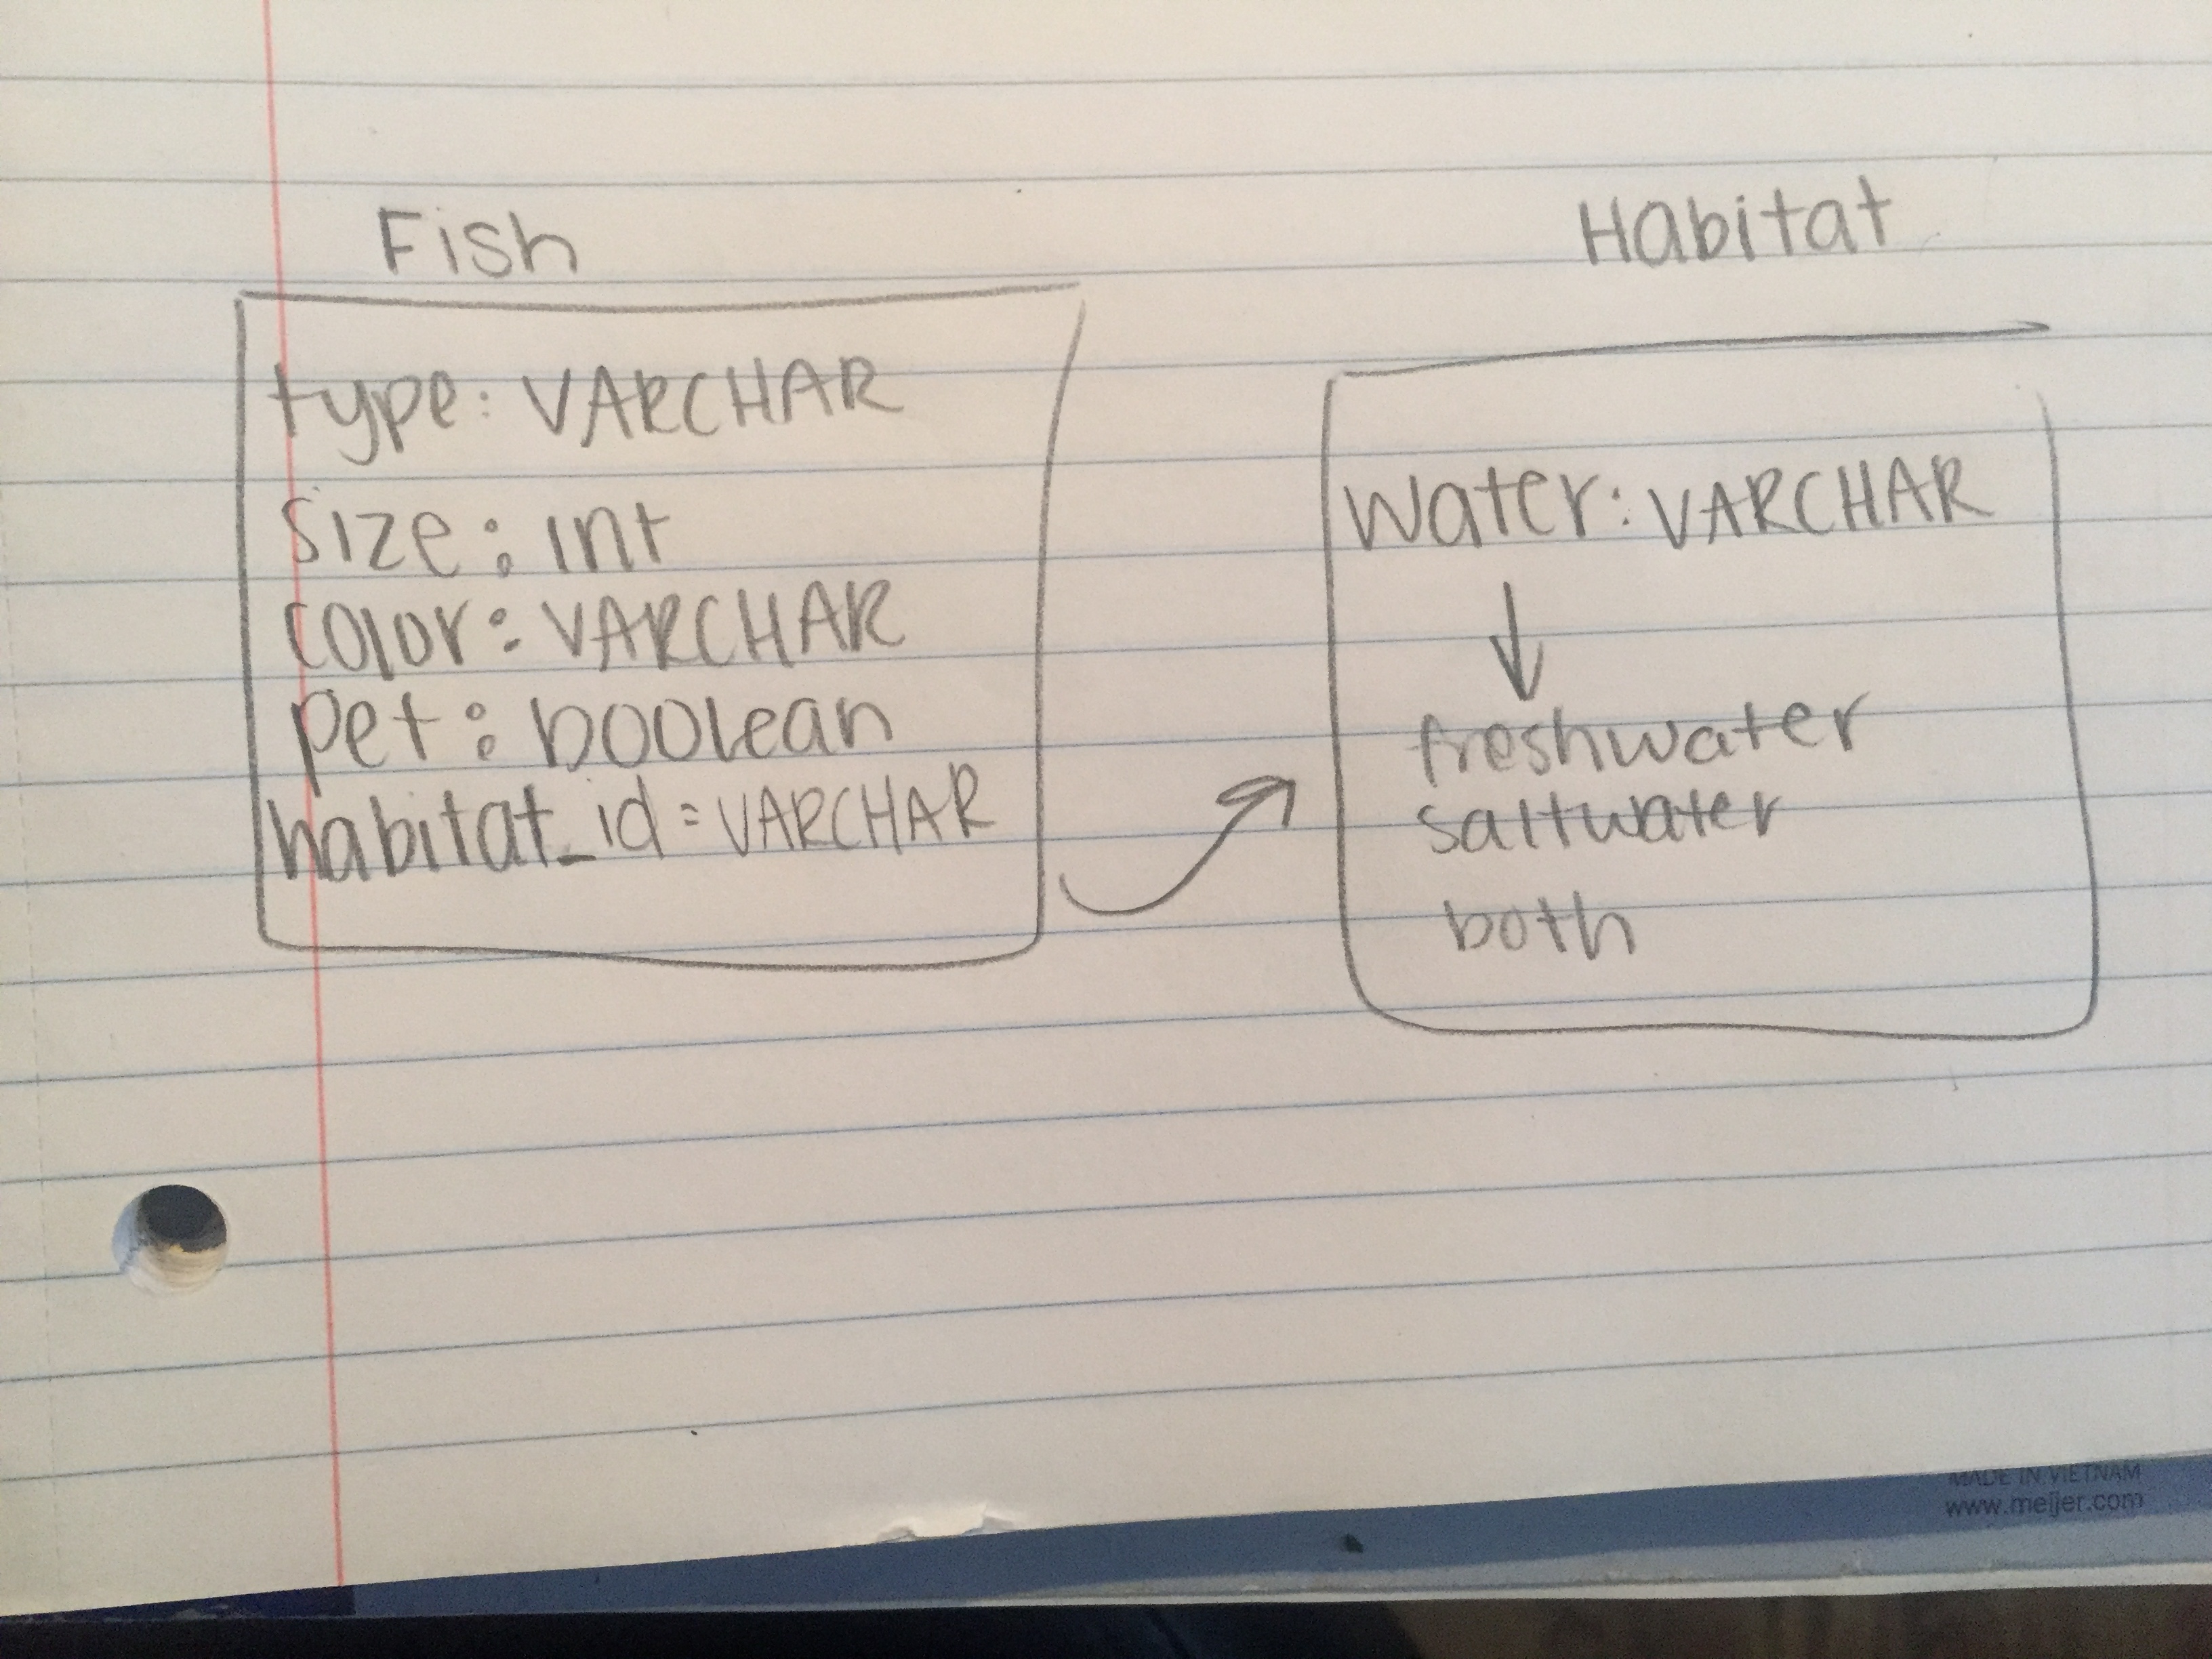 Fish
type: VARCHAR
size: int
color: VARCHAR
pet: boolean
habitat_id = VARCHAR
Habitat
water: VARCHAR
freshwater
saltwater
both
MADE IN VIETNAM
www.meijer.com